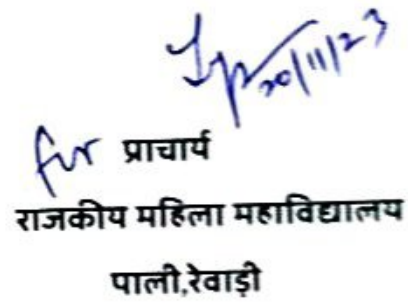 20/11/23
for प्राचार्य
राजकीय महिला महाविद्यालय
पाली,रेवाड़ी